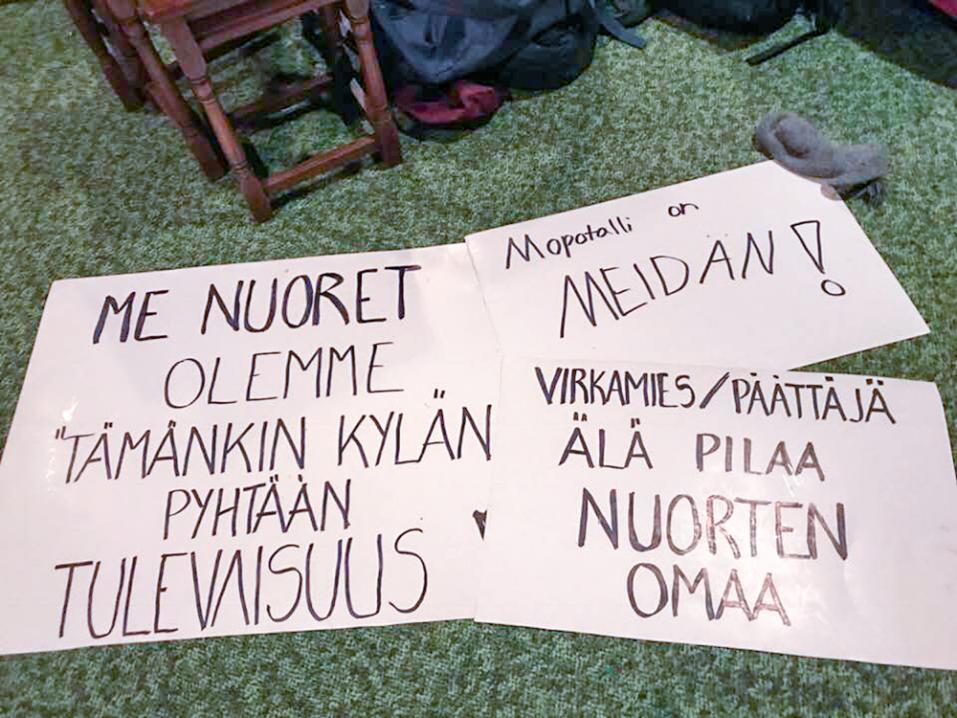 ME NUORET
OLEMME
"TÄMÄNKIN KYLÄN
PYHTÄÄN
TULEVAISUUS
Mopotalli on
MEIDÄN!
VIRKAMIES/PÄÄTTÄJÄ
ÄLÄ PILAA
NUORTEN
OMAA